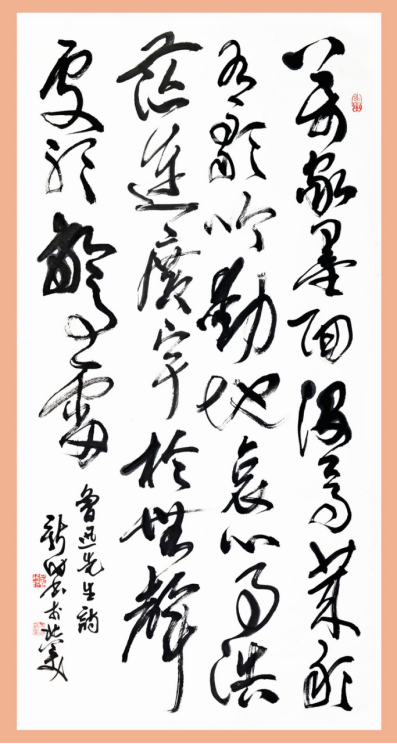 萬家墨面沒蒿萊敢
有歌吟動地哀心事浩
茫連廣宇於無聲
處聽驚雷
魯迅先生詩
書於北美